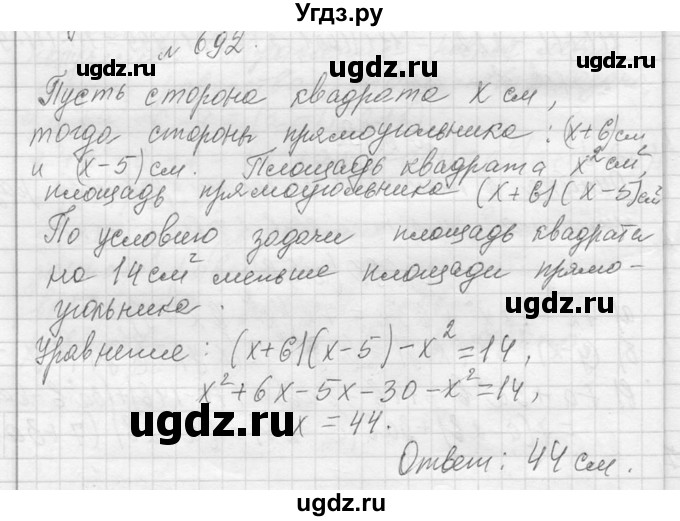 Угдз.ру
№ 692.
ugdz.ru ugdz.ru
Пусть сторона квадрата x см,
тогда стороны прямоугольника: (x+6) см
и (x-5) см. Площадь квадрата x² см²,
площадь прямоугольника (x+6)(x-5) см²
ugdz.ru ugdz.ru
По условию задачи площадь квадрата
на 14 см² меньше площади прямо-
угольника.
ugdz.ru ugdz.ru
Уравнение: (x+6)(x-5)-x²=14,
x²+6x-5x-30-x²=14,
ugdz.ru ugdz.ru
x = 44.
Ответ: 44 см.
ugdz.ru
ugdz.ru